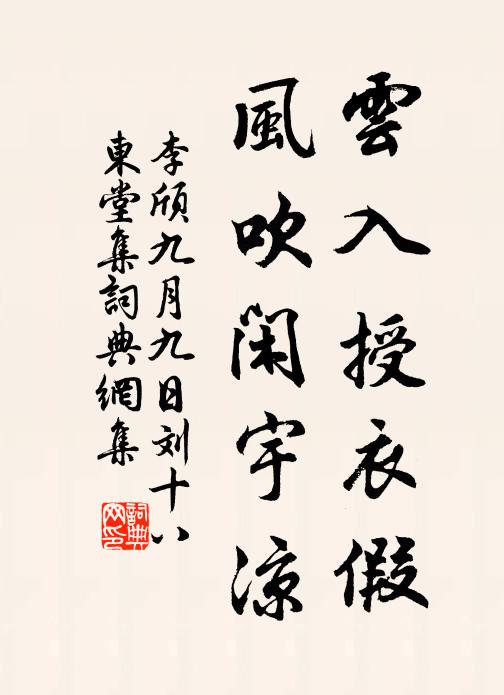 雲入授衣假
風吹閑宇涼
李頎九月九日刘十八
東堂集詞典網集
詞典
网印